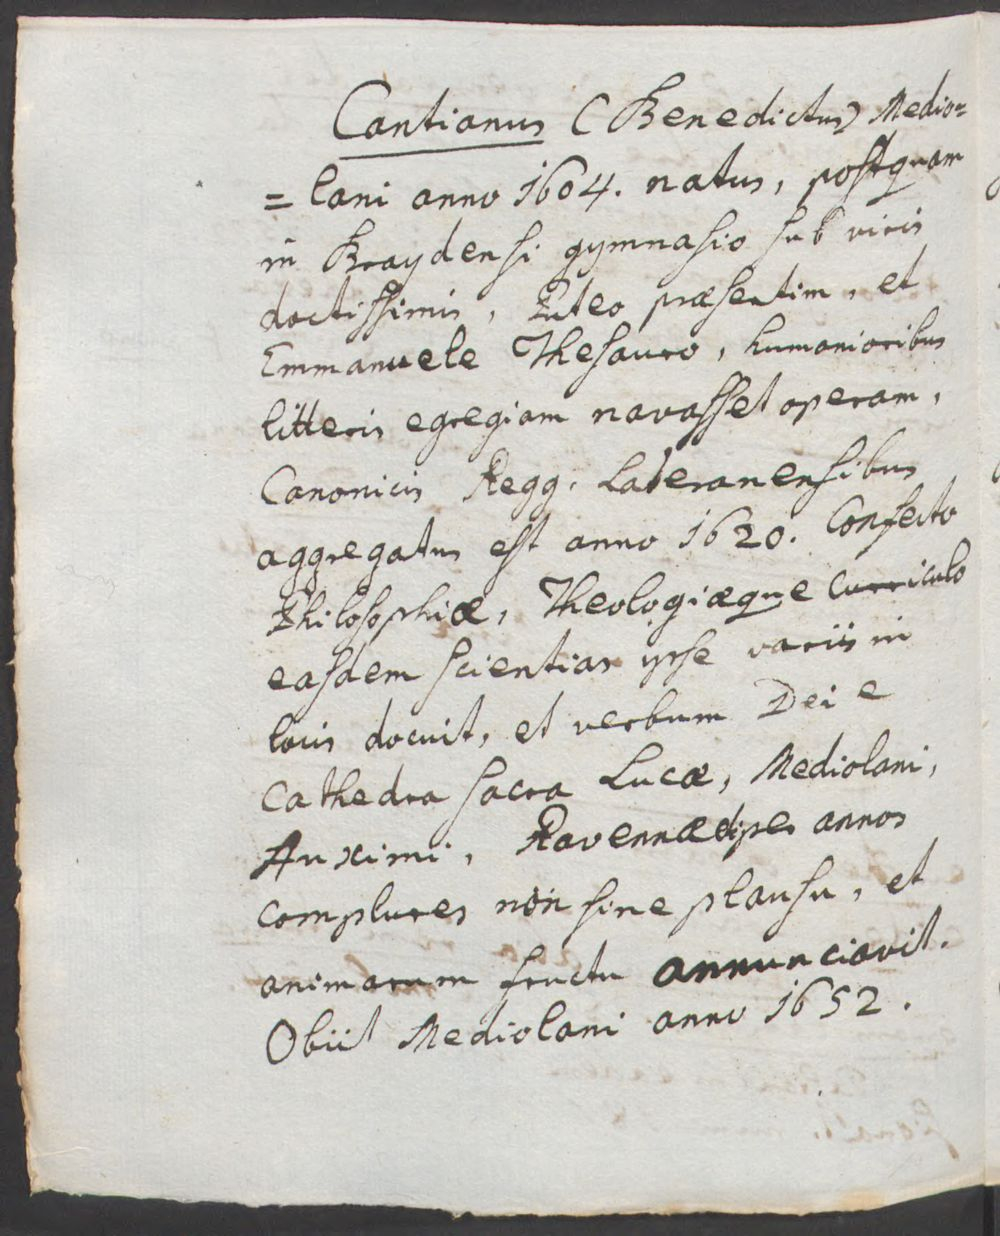 Cantianus (Benedictus) Medio=
= lani anno 1604. natus, postquam
in Braydensi gymnasio sub viris
doctissimis, Puteo præsertim, et
Emmanuele Thesauro, humanioribus
litteris egregiam navasset operam,
Canonicis Regg. Lateranensibus
aggregatus est anno 1620. Confecto
Philosophiæ, Theologiæque curriculo
easdem scientias ipse variis in
locis docuit, et verbum Dei e
cathedra sacra Lucæ, Mediolani,
Auximi, Ravennæ per annos
complures non sine plausu, et
animarum fructu annunciavit.
Obiit Mediolani anno 1652.